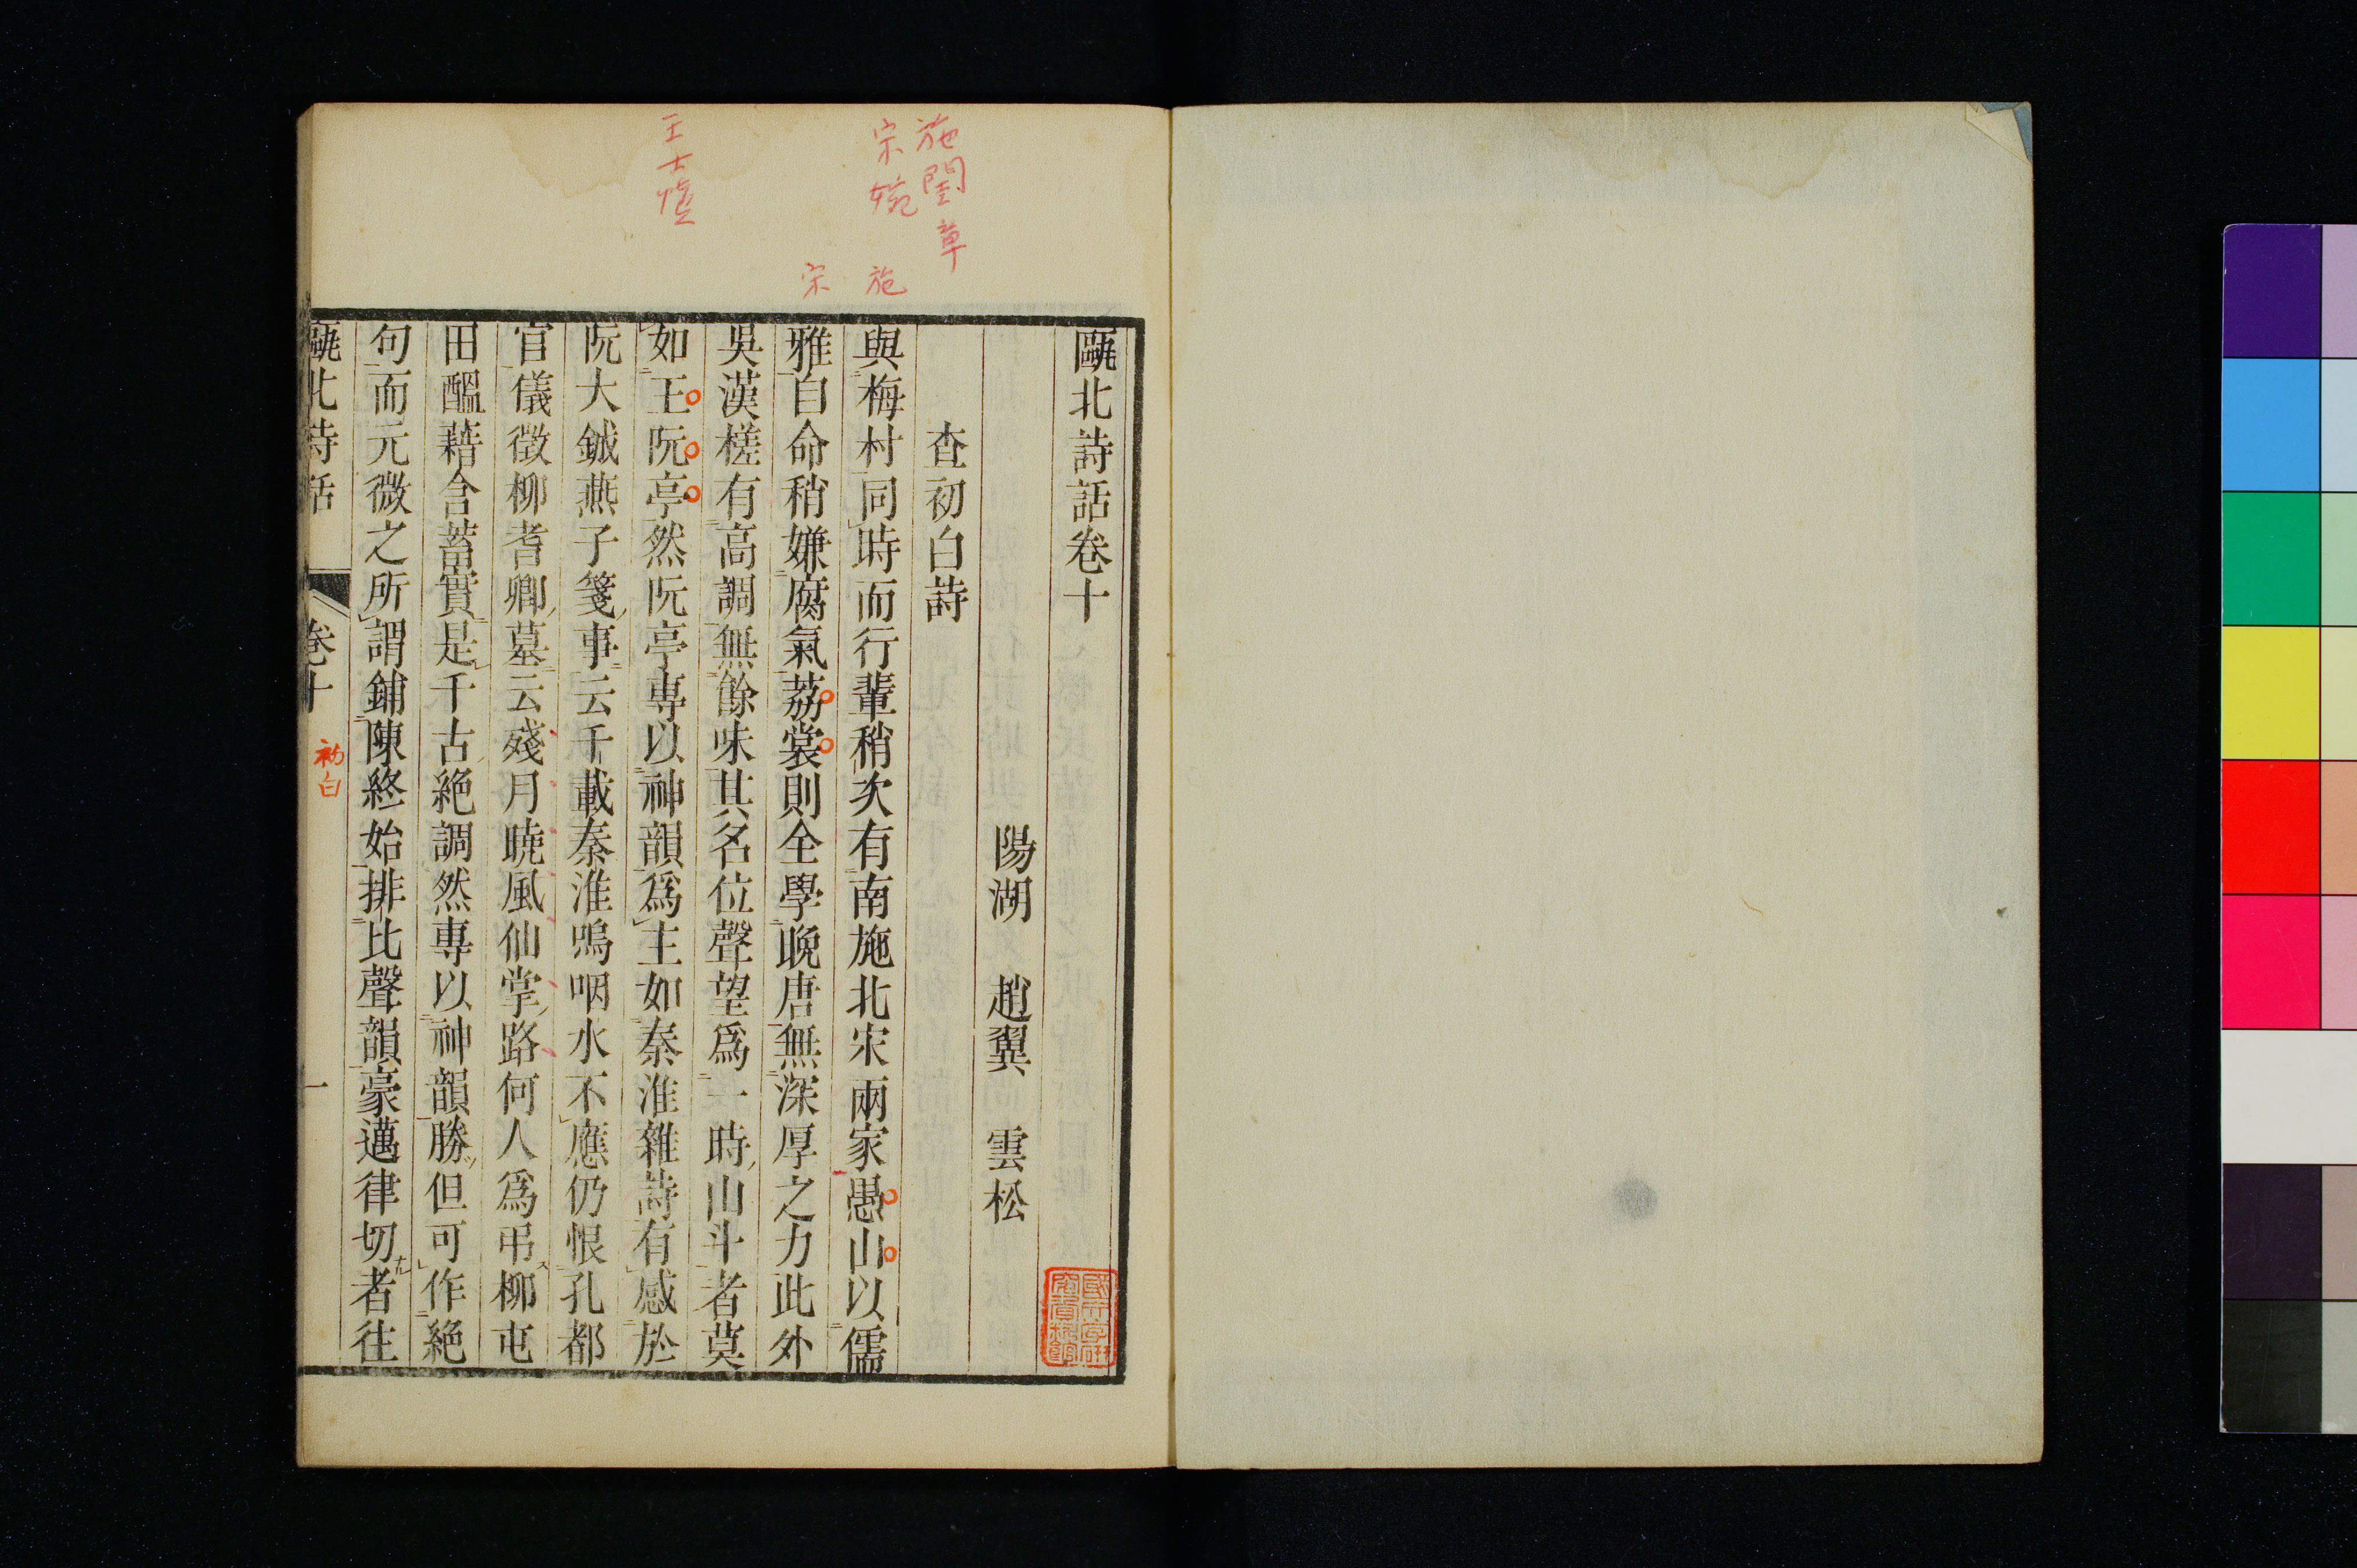 甌北詩話卷十
陽湖 趙翼 雲松
查初白詩
與梅村同時而行輩稍次有南施北宋兩家愚山以儒
雅自命稍嫌腐氣荔裳則全學晚唐無深厚之力此外
吳漢槎有高調無餘味其名位聲望爲一時山斗者莫
如王阮亭然阮亭專以神韻爲主如秦淮雜詩有感於
阮大鋮燕子箋事云千載秦淮嗚咽水不應仍恨孔都
官儀徵柳耆卿墓云殘月曉風仙掌路何人爲弔柳屯
田醞藉含蓄實是千古絕調然專以神韻勝但可作絕
句而元微之所謂鋪陳終始排比聲韻豪邁律切者往
甌北詩話 卷十 初白 一
施閏章
宋婉
施
宋
王士